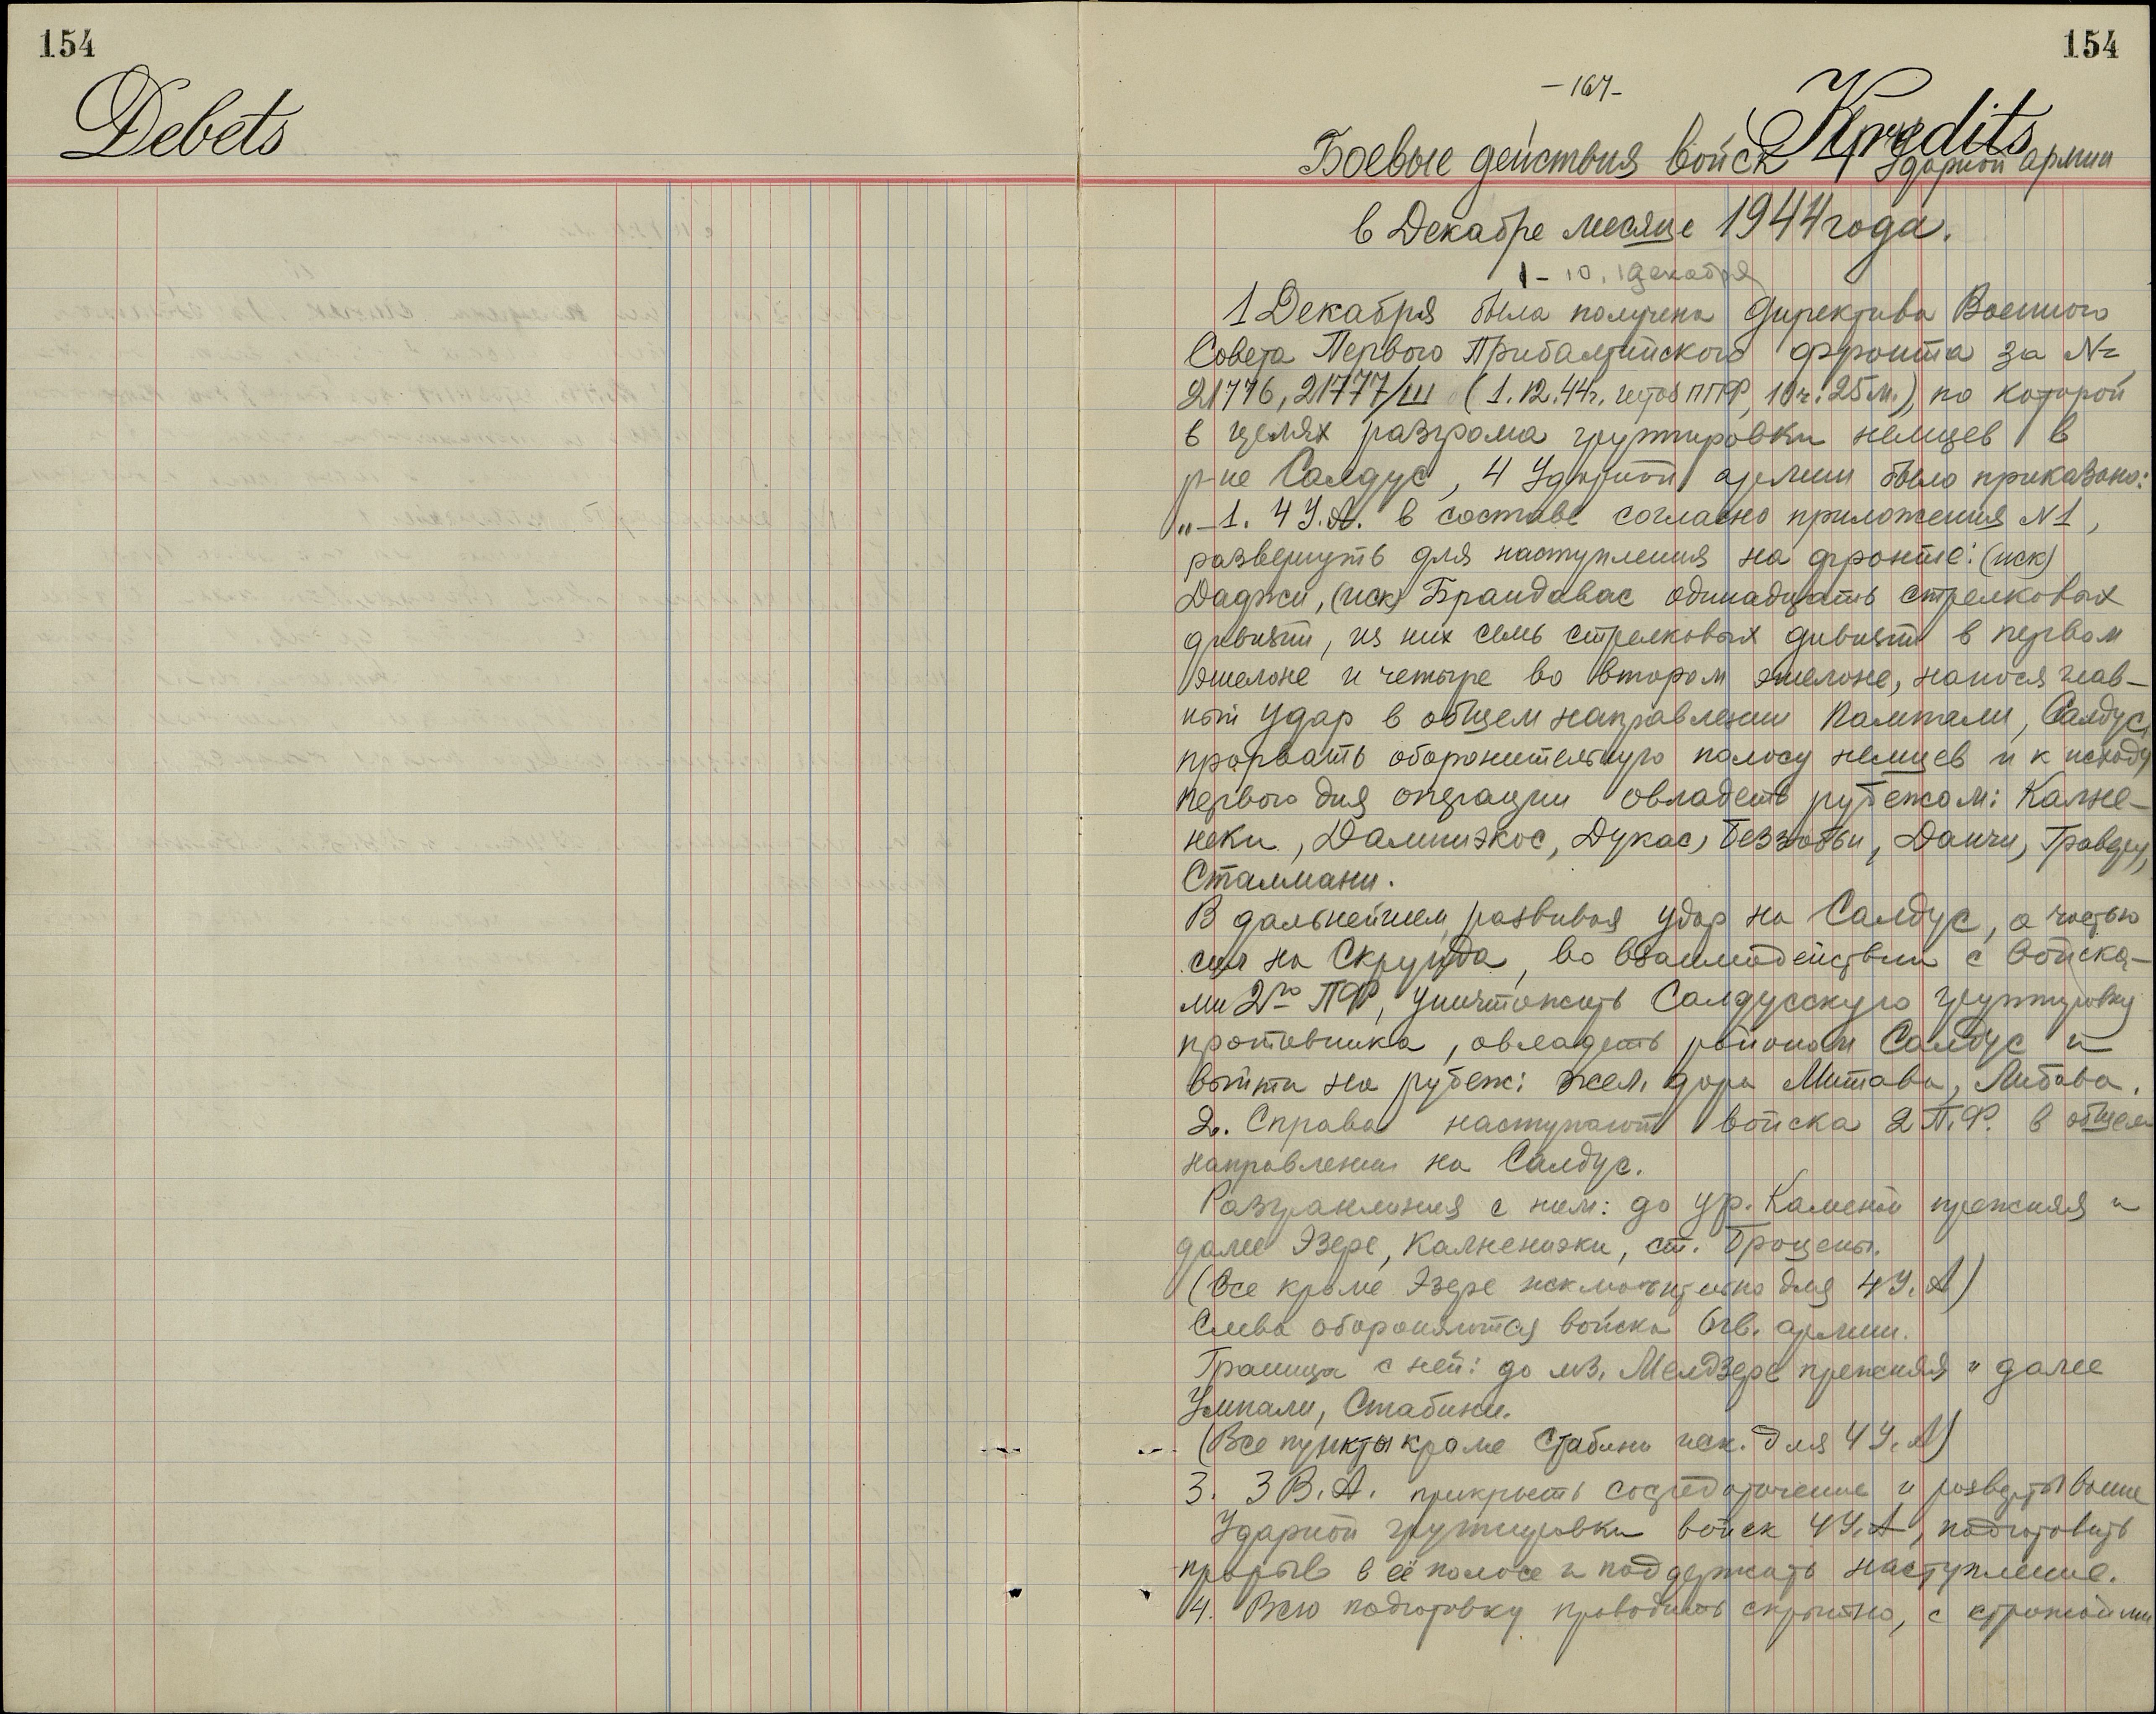 154
Debets
154
Kredits
-167-
Боевые действия войск 4 Ударной армии
в Декабре месяце 1944 года.
1 - 10. декабря
1 Декабря была получена Директива Военного
Совета Первого Прибалтийского фронта за №
21776, 21777/Ш (1.12.44г. штаб ППФ, 10ч. 25м.), по которой
в целях разгрома группировки немцев в
р-не Салдус, 4 Ударной армии было приказано:
„-1. 4 У.А. в составе согласно приложения N1,
развернуть для наступления на фронте: (иск)
Даджи, (иск) Брандавас одинадцать стрелковых
дивизий, из них семь стрелковых дивизий в первом
эшелоне и четыре во втором эшелоне, нанося глав-
ный удар в общем направлении Пампали, Салдус,
прорвать оборонительную полосу немцев и к исходу
первого дня операции овладеть рубежом: Калне-
ниеки, Дукас, Данчи,
Сталмани.
В дальнейшем, развивая удар на Салдус, а частью
сил на Скрунда, во взаимодействии с войска-
ми 2го ПФ, уничтожить Салдусскую группировку
противника, овладеть районом Салдус и
выйти на рубеж: жел. дор. Митава, Либава.
2. Справа наступают войска 2 П.Ф. в общем
направлении на Салдус.
Разгранлиния с ним: до ур. Камени прежняя и
далее Эзере, Калнениэки, ст. Броцены.
(Все кроме Эзере исключительно для 4 У.А)
Слева обороняются войска 6 гв. армии.
Граница с ней: до мз. Мелдзере прежняя и далее
Умпали, Стабини.
(Все пункты кроме Стабини иск. для 4 У.А)
3. 3 В.А. прикрыть сосредоточение и развертывание
Ударной группировки войск 4 У.А, подготовить
прорыв в её полосе и поддержать наступление.
4. Всю подготовку проводить скрытно, с